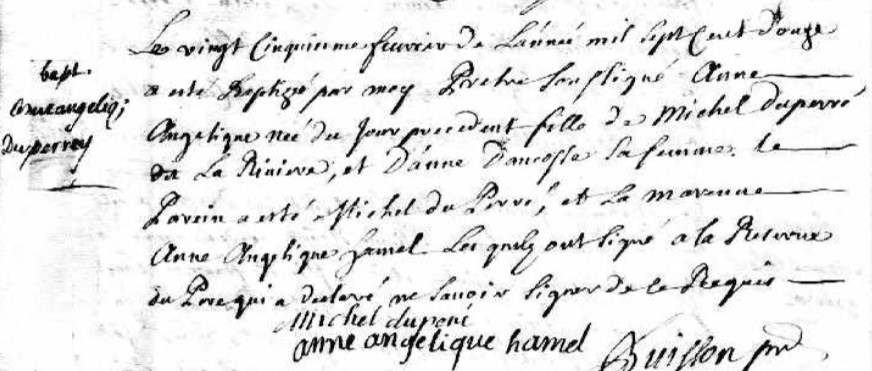 bapt.
anne angeliq;
Du perrey
Le vingt Cinquieme fevrier de L'année mil sept Cent Douze
a esté Baptizé par moy Pretre soussigné Anne
Angelique neé du Jour precedent fille de Michel duperré
La Riviere, et D'anne Dancosse sa femme. Le
Parein a esté Michel du Perré, et La mareinne
Anne Angelique hamel Lesquels ont signé a la Reserve
du Pere qui a declaré ne sçavoir signer de ce Requis
Michel duperré
anne angelique hamel
Buisson